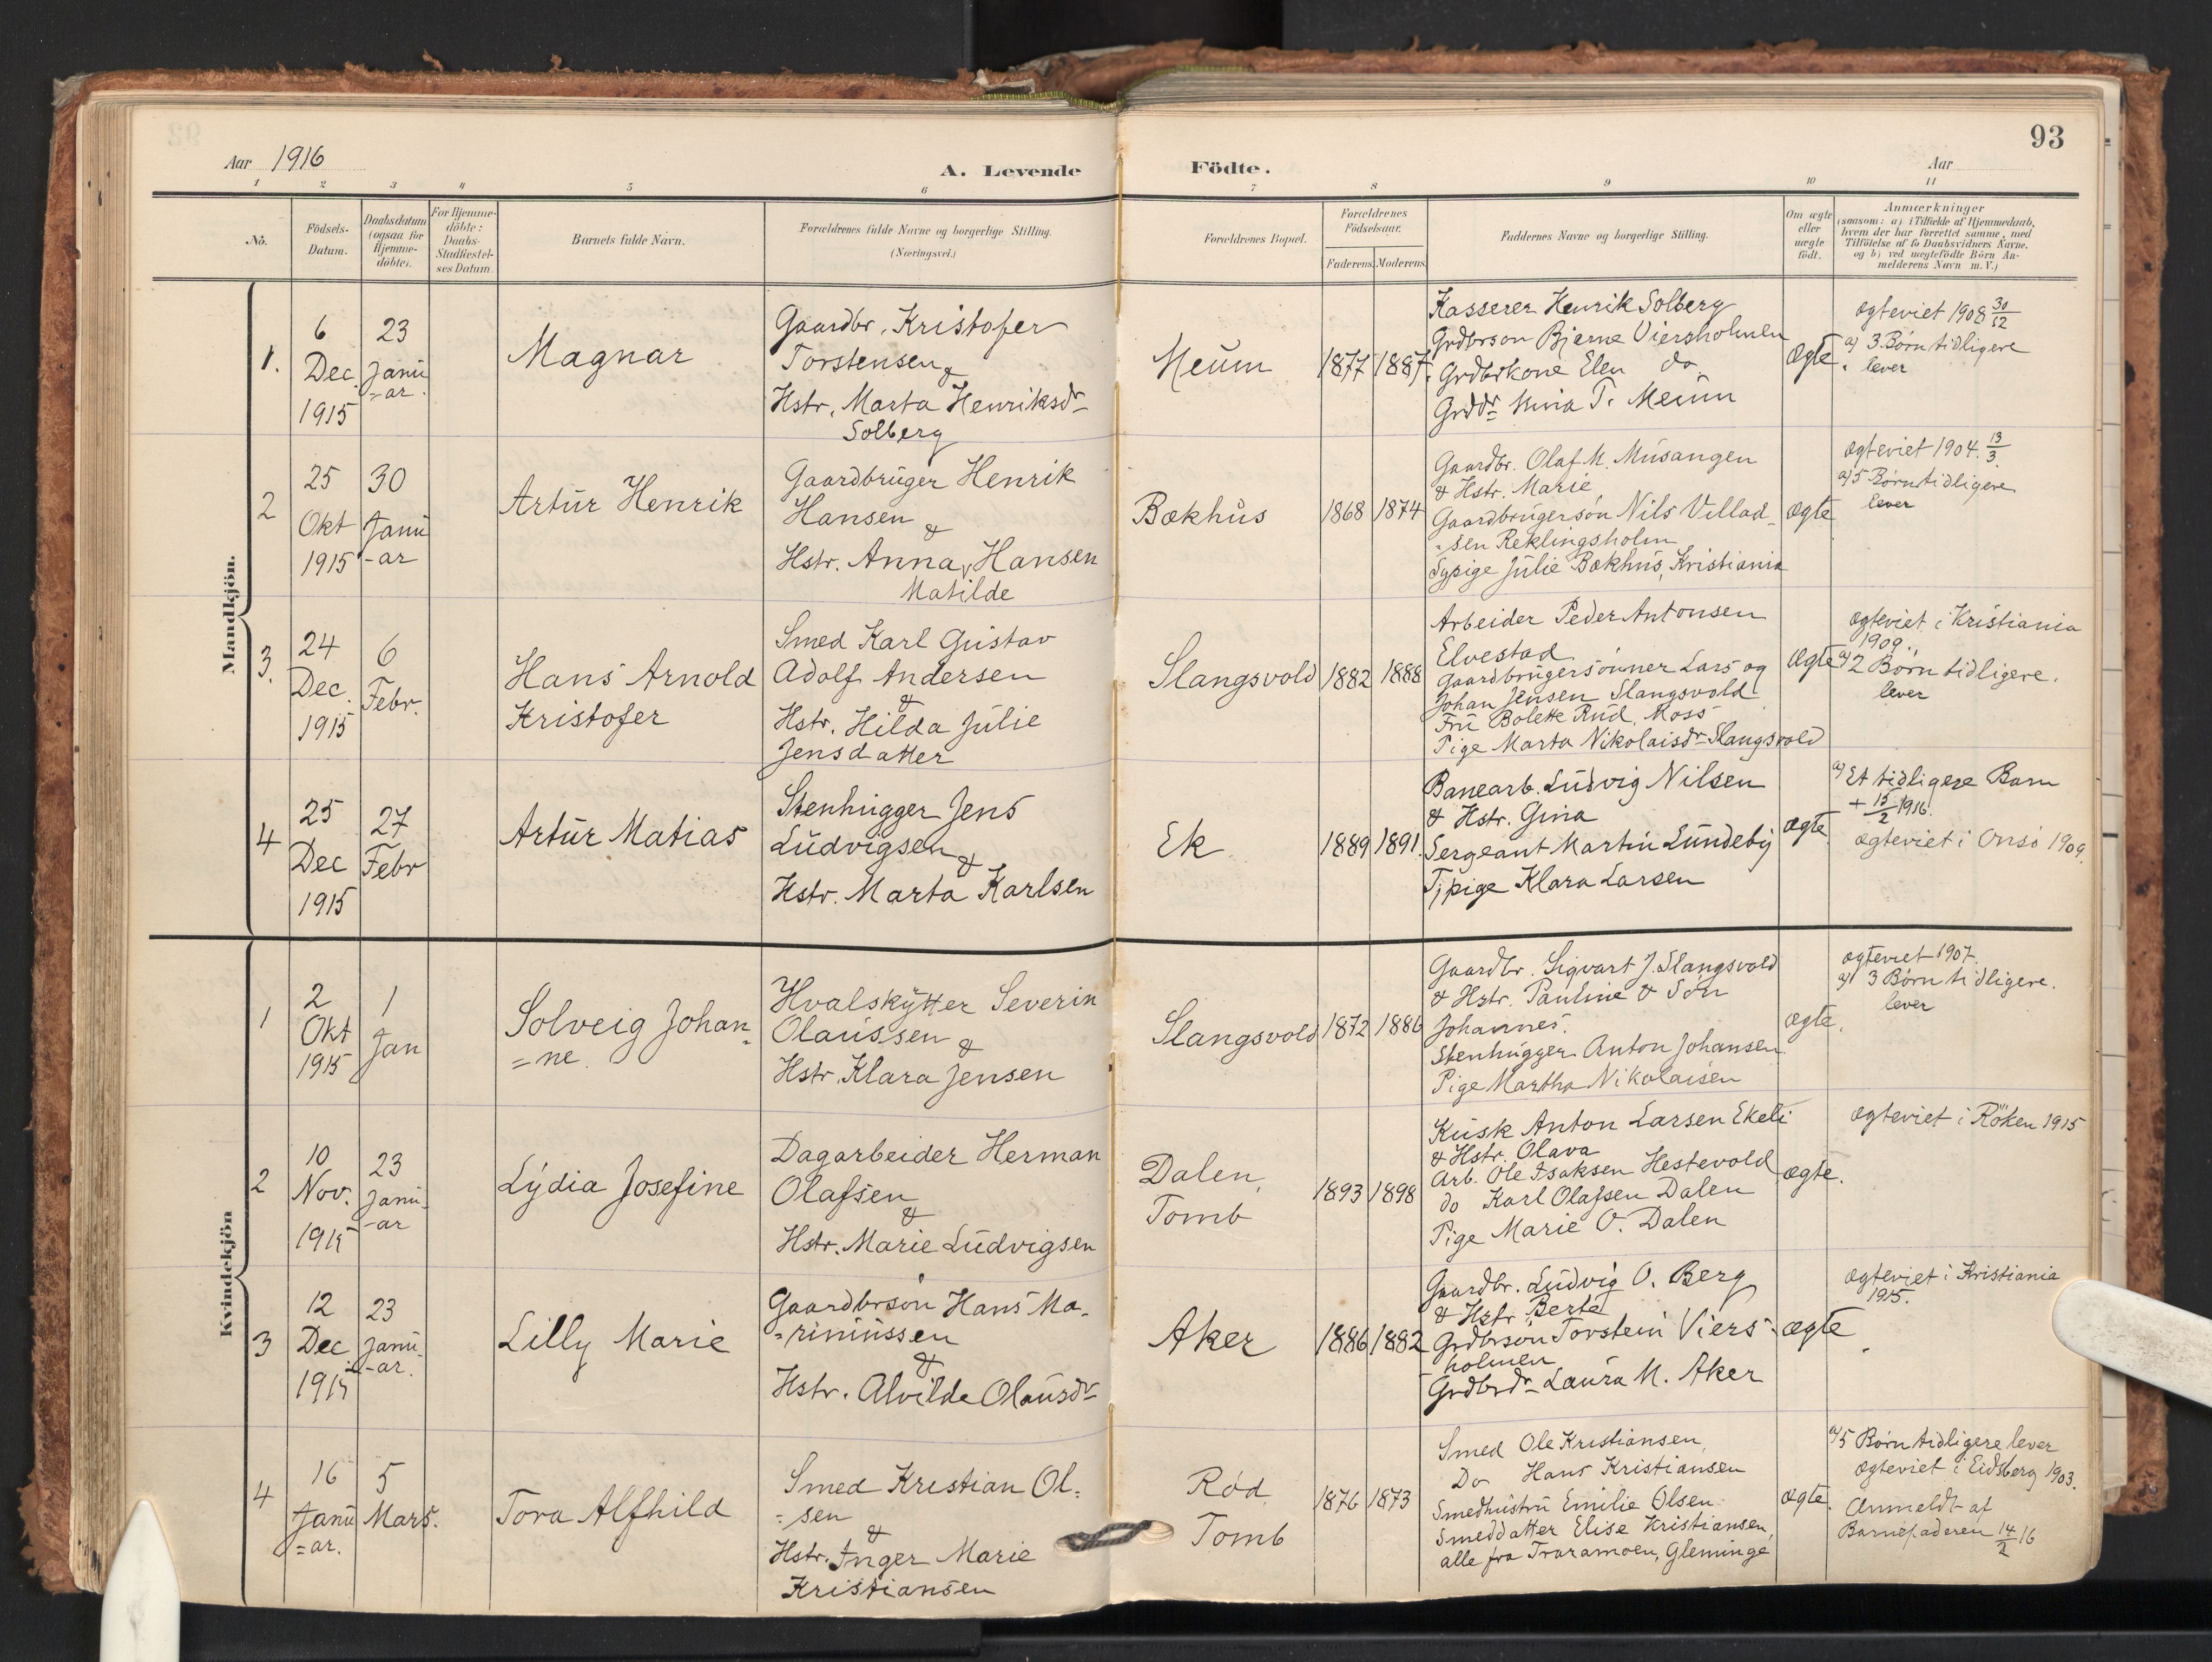 93
Aar 1916
A. Levende Födte.
Aar
1 2 3 4 5 6 7 8 9 10 11
No.
Födsels-
Datum.
Daabsdatum
(ogsaa for
Hjemme-
döbte).
For Hjemme-
döbte:
Daabs-
Stadfæstel-
ses Datum.
Barnets fulde Navn.
Forældrenes fulde Navne og borgerlige Stilling.
(Næringsvei.)
Forældrenes Bopæl.
Forældrenes
Födselsaar.
Faderens. Moderens.
Faddernes Navne og borgerlige Stilling.
Om ægte
eller
uægte
födt.
Anmærkninger
(saasom: a) i Tilfælde af Hjemmedaab,
hvem der har forrettet samme, med
Tilföielse af to Daabsvidners Navne,
og b) ved uægtefödte Börn An-
melderens Navn m. V.)
Mandkjön.
1.
6
Dec
1915
23
Janu
=ar.
Magnar
Gaardbr. Kristofer
Torstensen &
Hstr. Marta Henriksdr
Solberg
Meum
1877 1887
Kasserer Henrik Solberg
Grdbrson Bjerne Viersholmen
Grdbrkone Elen do.
Grddr Mina T. Meum
Ægte.
Ægteviet 1908 30/12
a) 3 Børn tidligere
lever
2
25
Okt
1915
30
Janu
-ar
Artur Henrik
Gaardbruger Henrik
Hansen &
Hstr. Anna Hansen
Matilde
Bækhus
1868 1874
Gaardbr. Olaf M. Musangen
& Hstr. Marie
Gaardbrugersøn Nils Villad-
=sen Reklingsholm
Sypige Julie Bækhus, Kristiania
Ægte
Ægteviet 1904. 13/3.
a) 5 Børn tidligere
lever
3.
24
Dec.
1915
6
Febr.
Hans Arnold
Kristofer
Smed Karl Gustav
Adolf Andersen
&
Hstr. Hilda Julie
Jensdatter
Slangsvold
1882 1888
Arbeider Peder Antonsen
Elvestad
Gaardbrugersønner Lars og
Johan Jensen Slangsvold
Fru Bolette Rud, Moss
Pige Marta Nikolaisdr Slangsvold
Ægte
Ægteviet i Kristiania
1909.
a) 2 Børn tidligere.
lever
4
25
Dec
1915
27
Febr
Artur Matias
Stenhugger Jens
Ludvigsen &
Hstr. Marta Karlsen
Ek
1889 1891.
Banearb. Ludvig Nilsen
& Hstr. Gina
Sergeant Martin Lundeby
Tjpige Klara Larsen
Ægte
a) Et tidligere Barn
+ 15/2 1916.
Ægteviet i Onsø 1909.
Kvindekjön
1
2
Okt
1915
1
Jan
Solveig Johan-
=ne.
Hvalskytter Severin
Olaussen &
Hstr. Klara Jensen
Slangsvold
1872 1886
Gaardbr. Sigvart J. Slangsvold
& Hstr. Pauline & Søn
Johannes.
Stenhugger Anton Johansen.
Pige Martha Nikolaisen
Ægte.
Ægteviet 1907.
a) 3 Børn tidligere.
lever
2
10
Nov.
1915
23
Janu-
-ar
Lydia Josefine
Dagarbeider Herman
Olafsen
&
Hstr. Marie Ludvigsen
Dalen,
Tomb
1893 1898
Kusk Anton Larsen Ekeli
& Hstr. Olava
Arb. Ole Isaksen Hestevold
do Karl Olafsen Dalen
Pige Marie O. Dalen
Ægte.
Ægteviet i Røken 1915
3
12
Dec
1915
23
Janu-
-ar.
Lilly Marie
Gaardbrsøn Hans Ma-
=rinussen
&
Hstr. Alvilde Olausdr
Aker
1886 1882
Gaardbr. Ludvig O. Berg
& Hstr. Berte
Grdbrsøn Torstein Viers-
holmen
Grdbrdr Laura M. Aker
Ægte.
Ægteviet i Kristiania
1915.
4
16
Janu
=ar.
5
Mars.
Tora Alfhild
Smed Kristian Ol-
=sen
&
Hstr. Inger Marie
Kristiansen
Rød
Tomb
1876 1873
Smed Ole Kristiansen,
Do Hans Kristiansen
Smedhustru Emilie Olsen
Smeddatter Elise Kristiansen,
alle fra Traramoen, Gleminge
Ægte.
a) 5 Børn tidligere lever
Ægteviet i Eidsberg 1903.
Anmeldt af
Barnefaderen 14/2 16